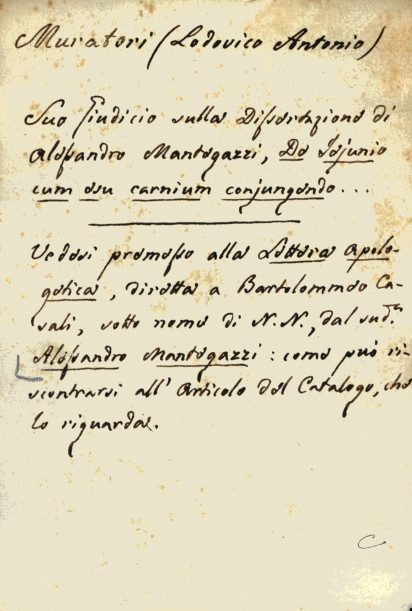 Muratori (Lodovico Antonio)
Suo Giudicio sulla Dissertazione di
Alessandro Mantegazzi, De Jejunio
cum esu carnium conjungendo...
Vedesi premesso alla Lettera Apolo-
getica, diretta a Bartolommeo Ca-
sali, sotto nome di N.N., dal sud.º
Alessandro Mantegazzi: come può ri-
scontrarsi all' Articolo del Catalogo, che
lo riguarda.
C